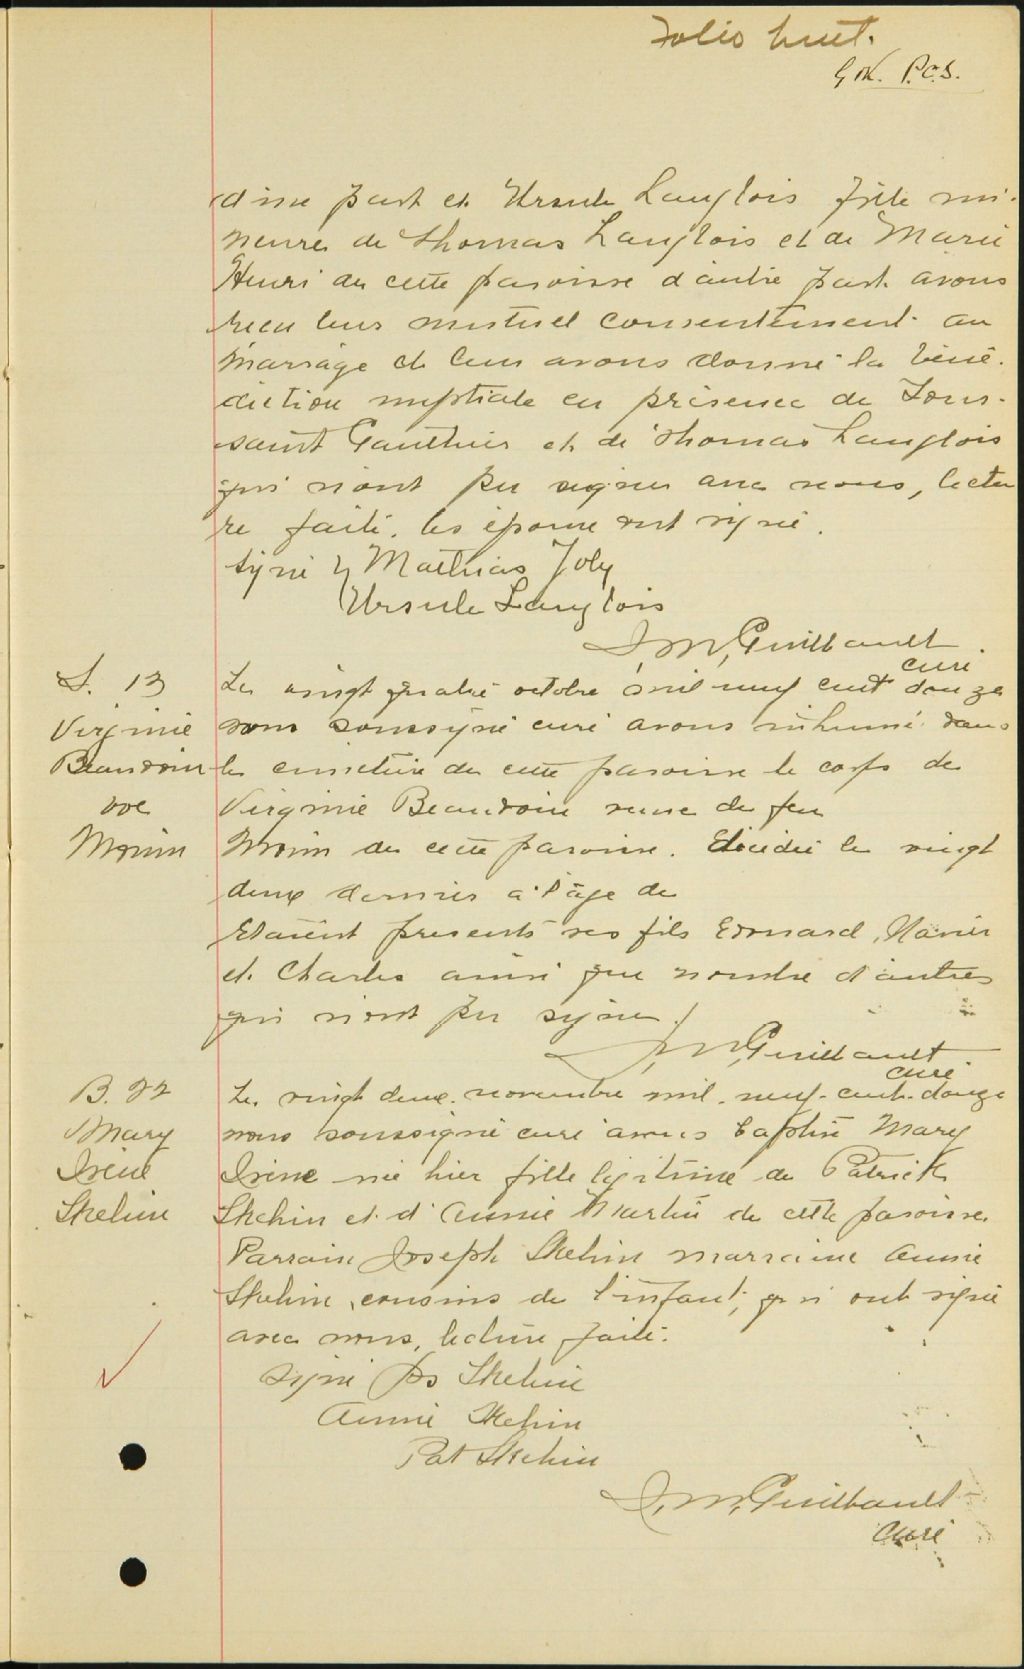 Folio huit.
G.N. P.C.S.
d'une part et Ursule Langlois fille mi-
neure de Thomas Langlois et de Marie
Henri de cette paroisse d'autre part avons
recu leur mutuel consentement au
mariage et leur avons donné la béné-
diction nuptiale en présence de Tous-
saint Gauthier et de Thomas Langlois
qui n'ont pu signer avec nous, lectu
re faite. les époux ont signé.
Signé Mathias Joly
Ursule Langlois
J. M, Guilbault
curé
S. 13
Virginie
Beaudoin
vve
Morin
Le vingt quatre octobre mil neuf cent douze
nous soussigné curé avons inhumé dans
le cimetière de cette paroisse le corps de
Virginie Beaudoin veuve de feu
Morin de cette paroisse. Décédée le vingt
deux dernier à l'âge de
Etaient presents ses fils Edouard, Xavier
et Charles ainsi que nombre d'autres
qui n'ont pu signer.
J. M, Guilbault
curé
B. 22
Mary
Irène
Skehin
Le vingt deux novembre mil neuf cent douze
nous soussigné curé avons baptisé Mary
Irène née hier fille légitime de Patrick
Skehin et d'Annie Martin de cette paroisse.
Parrain Joseph Skehin marraine Annie
Skehin, cousins de l'enfant, qui ont signé
avec nous, lecture faite.
Signé Jos Skehin
Annie Skehin
Pat Skehin
J. M, Guilbault
curé